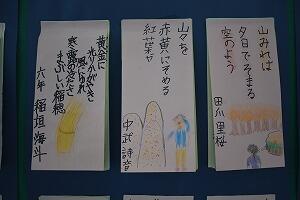 山みれば
夕日でそまる
空のよう
田川里桜
山々を
赤黄にそめる
紅葉や
中武詩音
黄金に
光りかがやき
風にゆれ
まぶしい稲穂
六年 稲垣海斗